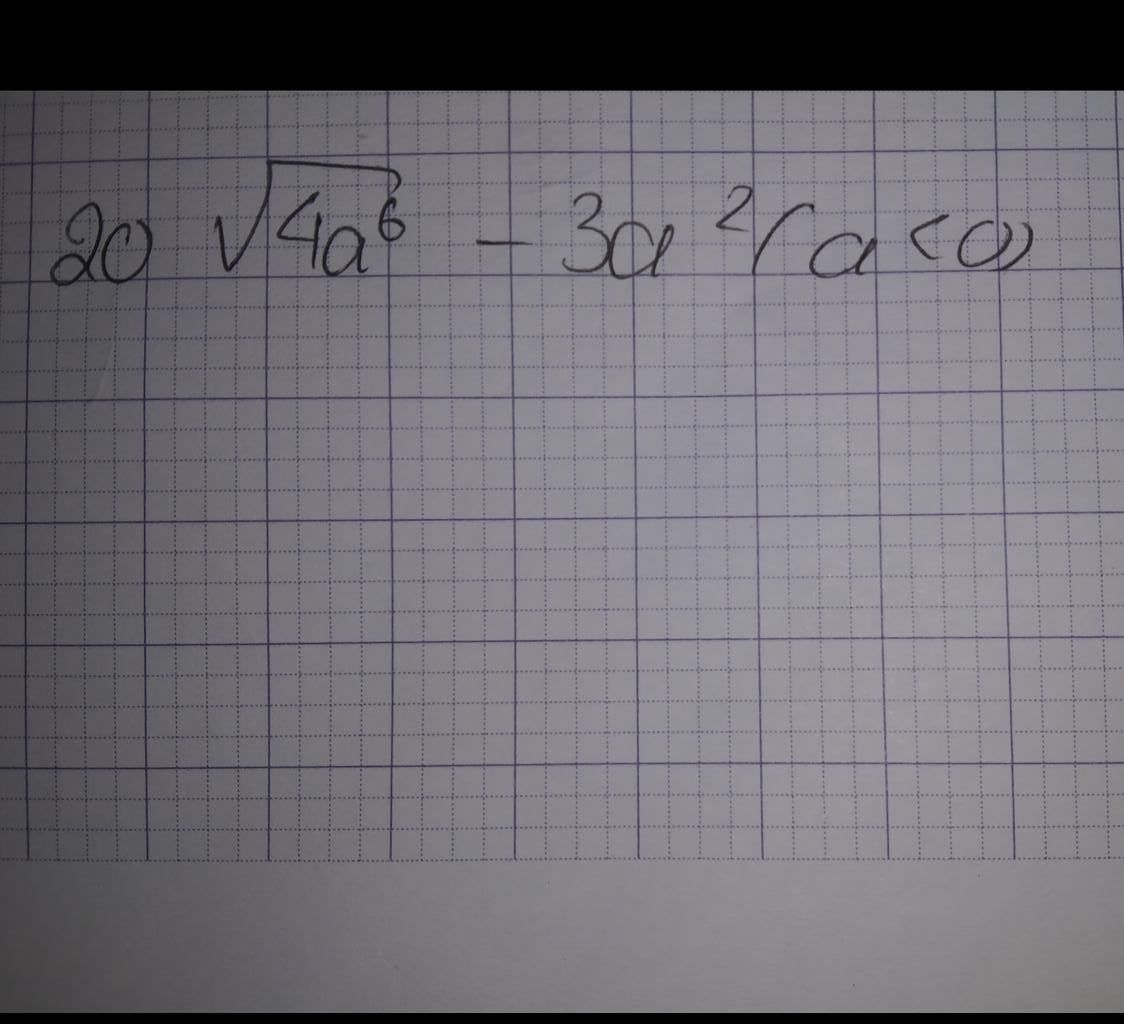 20 √4a⁶ - 3a² (a < 0)